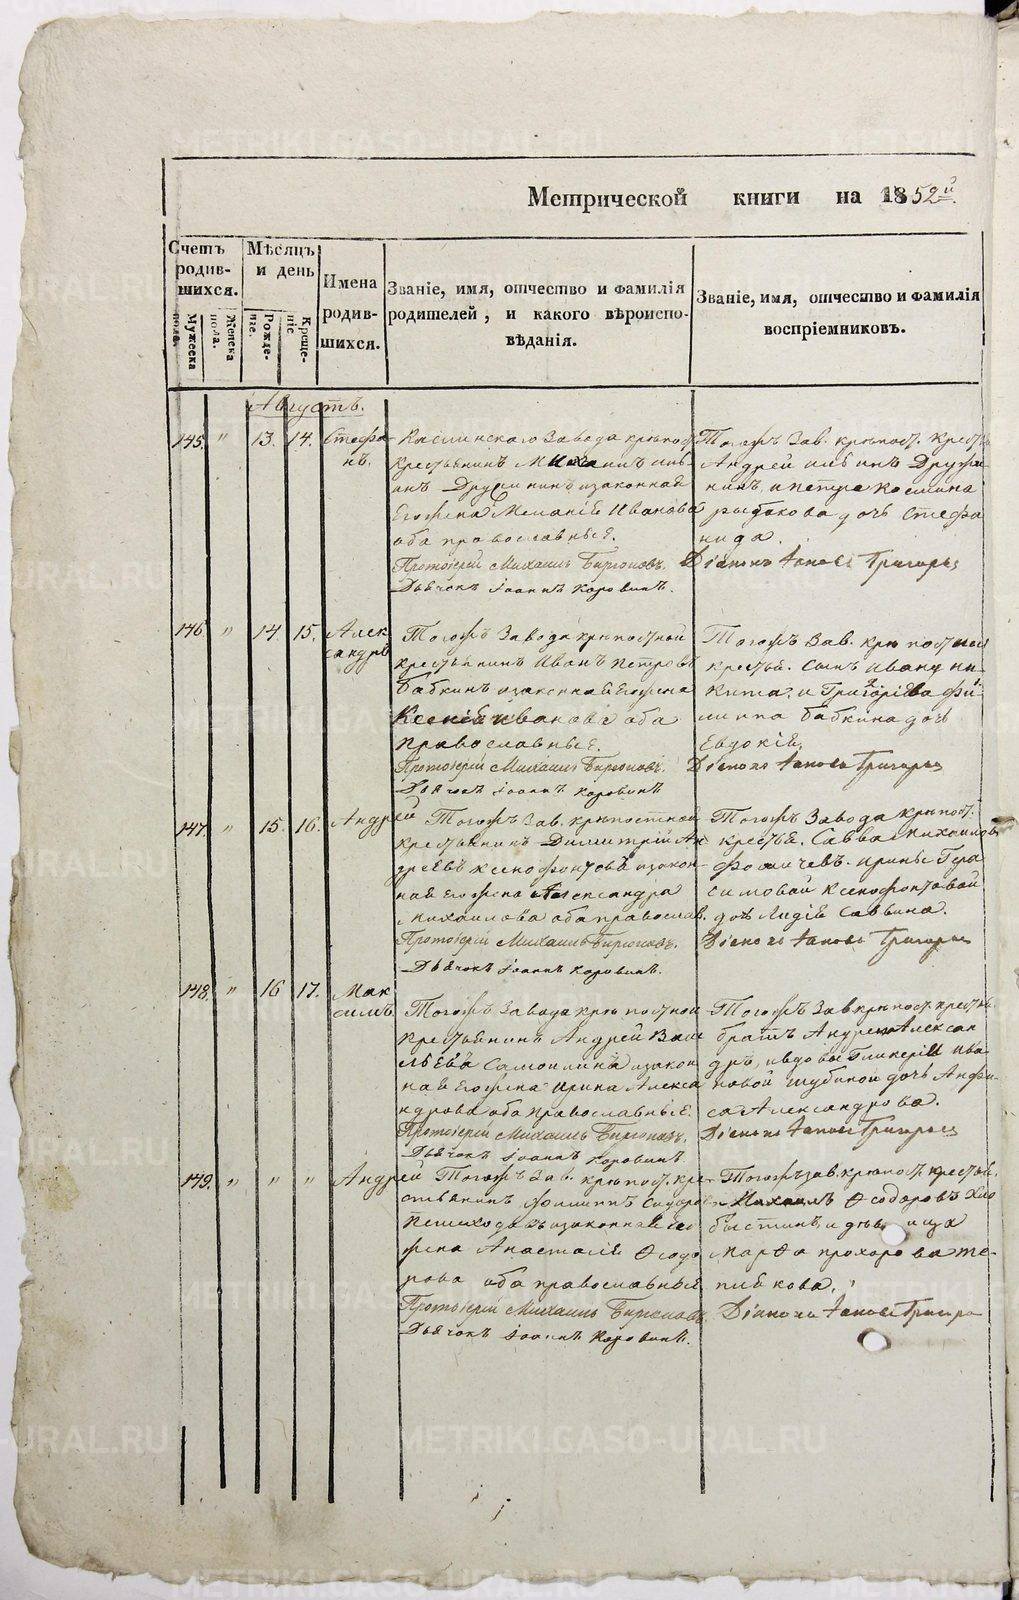 Метрической книги на 1852й.
Счетъ родив- шихся.
Мужеска пола.
Женска пола.
Мѣсяцъ и день
Рожде- ніе.
Креще- ніе
Имена родив- шихся.
Званіе, имя, отчество и фамилія
родителей, и какого вѣроиспо-
вѣданія.
Званіе, имя, отчество и фамилія
воспріемниковъ.
Августъ.
145. " 13. 14. Стефа-
нъ.
Каслинскаго Завода крѣпост
крестьянинъ Михаилъ
Дружининъ и законная
Его жена Меланія Иванова
оба православныe.
Протоіерей Михаилъ Бирюковъ.
Дьячокъ Іоаннъ Коровинъ.
Тогожъ Зав. крѣпост. крестья
Андрей Дружи-
нинъ, и Петра Космина
рыбакова дочь Стефа
нида.
Діаконъ Іаковъ Григорье
146 " 14. 15. Алек
сандръ
Тогожъ Завода крѣпостной
крестьянинъ Иванъ Петровъ
Бабкинъ и законная Его жена
Ксенія Иванова оба
православныe.
Протоіерей Михаилъ Бирюковъ.
Дьячокъ Іоаннъ Коровинъ
Тогожъ Зав. крѣпостной
крестья. Сынъ Ивану Ни-
кита. и Григорьева Фи-
липпа бабкина дочь
Евдокія.
Діаконъ Іаковъ Григорье
147. " 15. 16. Андрей
Тогожъ Зав. крѣпостной
крестьянинъ Димитрій Ан
дреевъ Ксенофонтовъ и закон-
ная Его жена Александра
Михаилова оба православ.
Протоіерей Михаилъ Бирюковъ.
Дьячокъ Іоаннъ Коровинъ.
Тогожъ Завода крѣпост.
крестья. Савва Михаиловъ
Фомичевъ. Ирины Гера
симовой Ксенофонтовой
дочь Лидія Саввина.
Діаконъ Іаковъ Григорье
148. " 16 17. Мак
симъ.
Тогожъ Завода крѣпостной
крестьянинъ Андрей Васи
льевъ Самоилинъ и закон
ная Его жена Ирина Алекса
ндрова оба православныe.
Протоіерей Михаилъ Бирюковъ.
Дьячокъ Іоаннъ Коровинъ
Тогожъ Зав крѣпост. крестья.
братъ Андрея Алексан
дръ, и вдовы Гликеріи Ива
новой Шубиной дочь Анфи-
са Александрова.
Діаконъ Іаковъ Григорье
149. " " " Андрей
Тогожъ Зав. крѣпост. кре-
стьянинъ Филиппъ Сидоров
Пешеходовъ и законная Его
жена Анастасія Ѳеодо
рова оба православныe
Протоіерей Михаилъ Бирюковъ
Дьячокъ Іоаннъ Коровинъ.
Тогожъ зав. крѣпост. крестья.
Михаилъ Ѳеодоровъ Хло
быстинъ, и дѣвица
Марѳа прохорова Те-
плякова.
Діаконъ Іаковъ Григорье